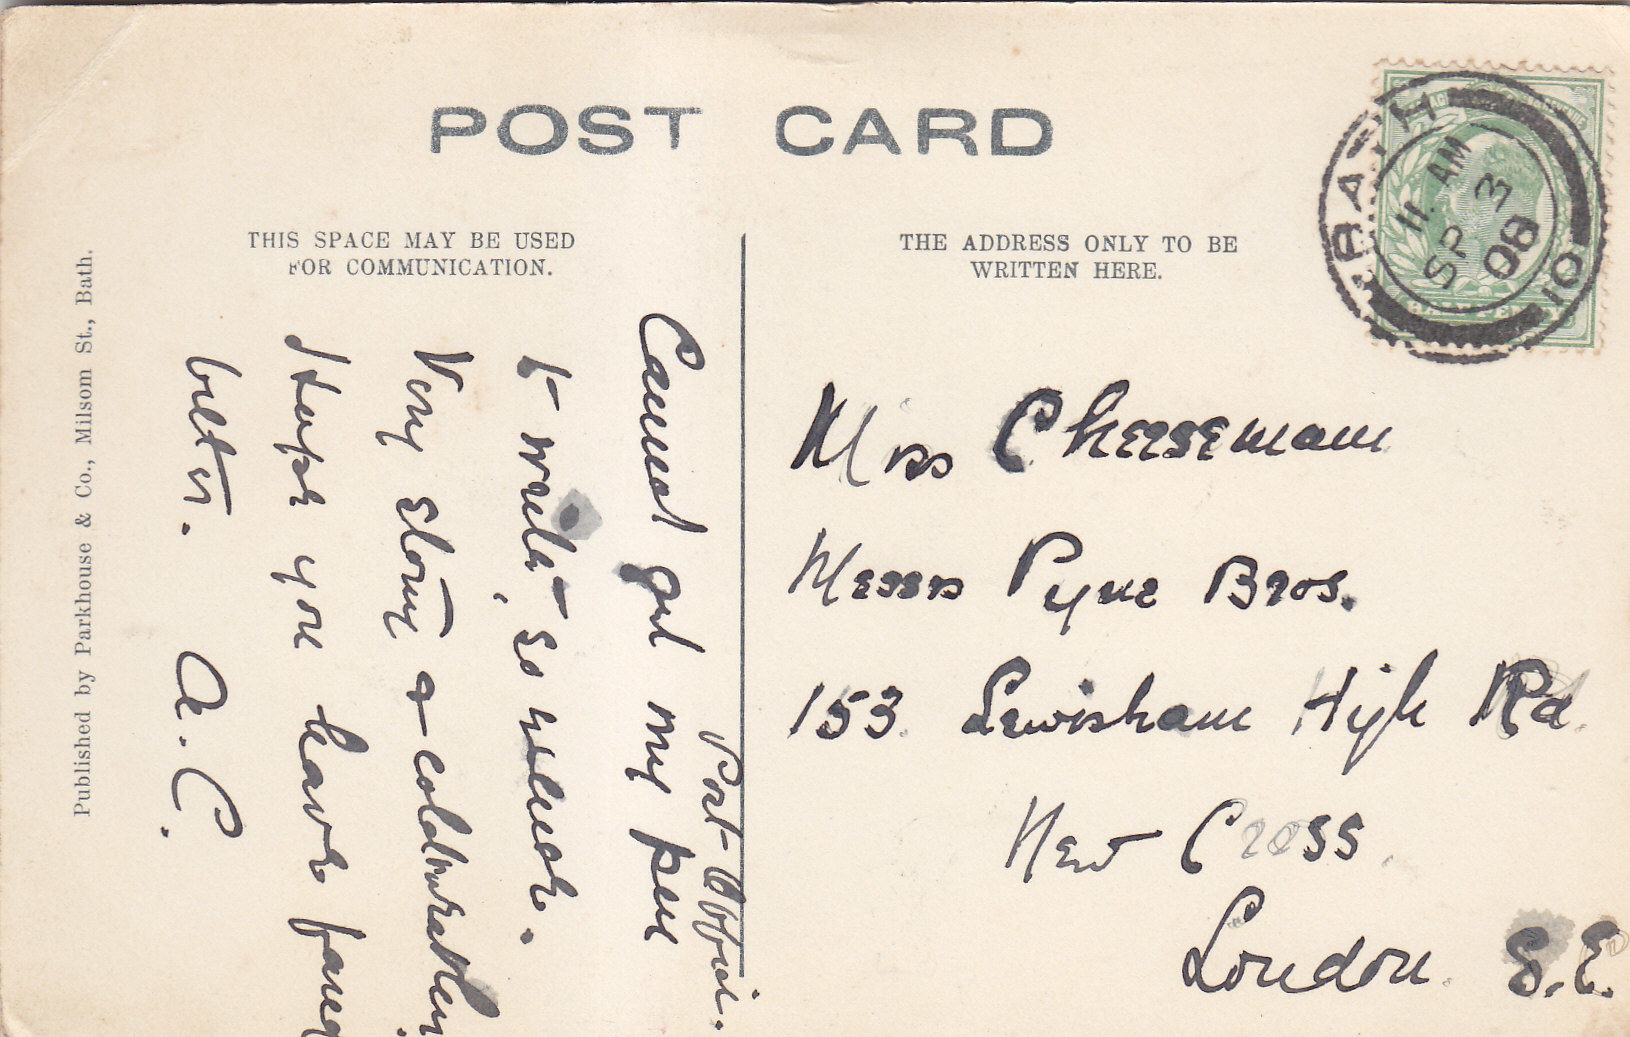 POST CARD
THIS SPACE MAY BE USED
FOR COMMUNICATION.
THE ADDRESS ONLY TO BE
WRITTEN HERE.
BATH
11 AM
SP 3
08
10
Published by Parkhouse & Co., Milsom St., Bath.
Post Office.
Cannot get my pen
to write, so much.
Very stormy & cold weather
Hope you have
better. A. C.
Miss Cheeseman
Messrs Pyne Bros.
153 Lewisham High Rd.
New Cross
London. S.E.